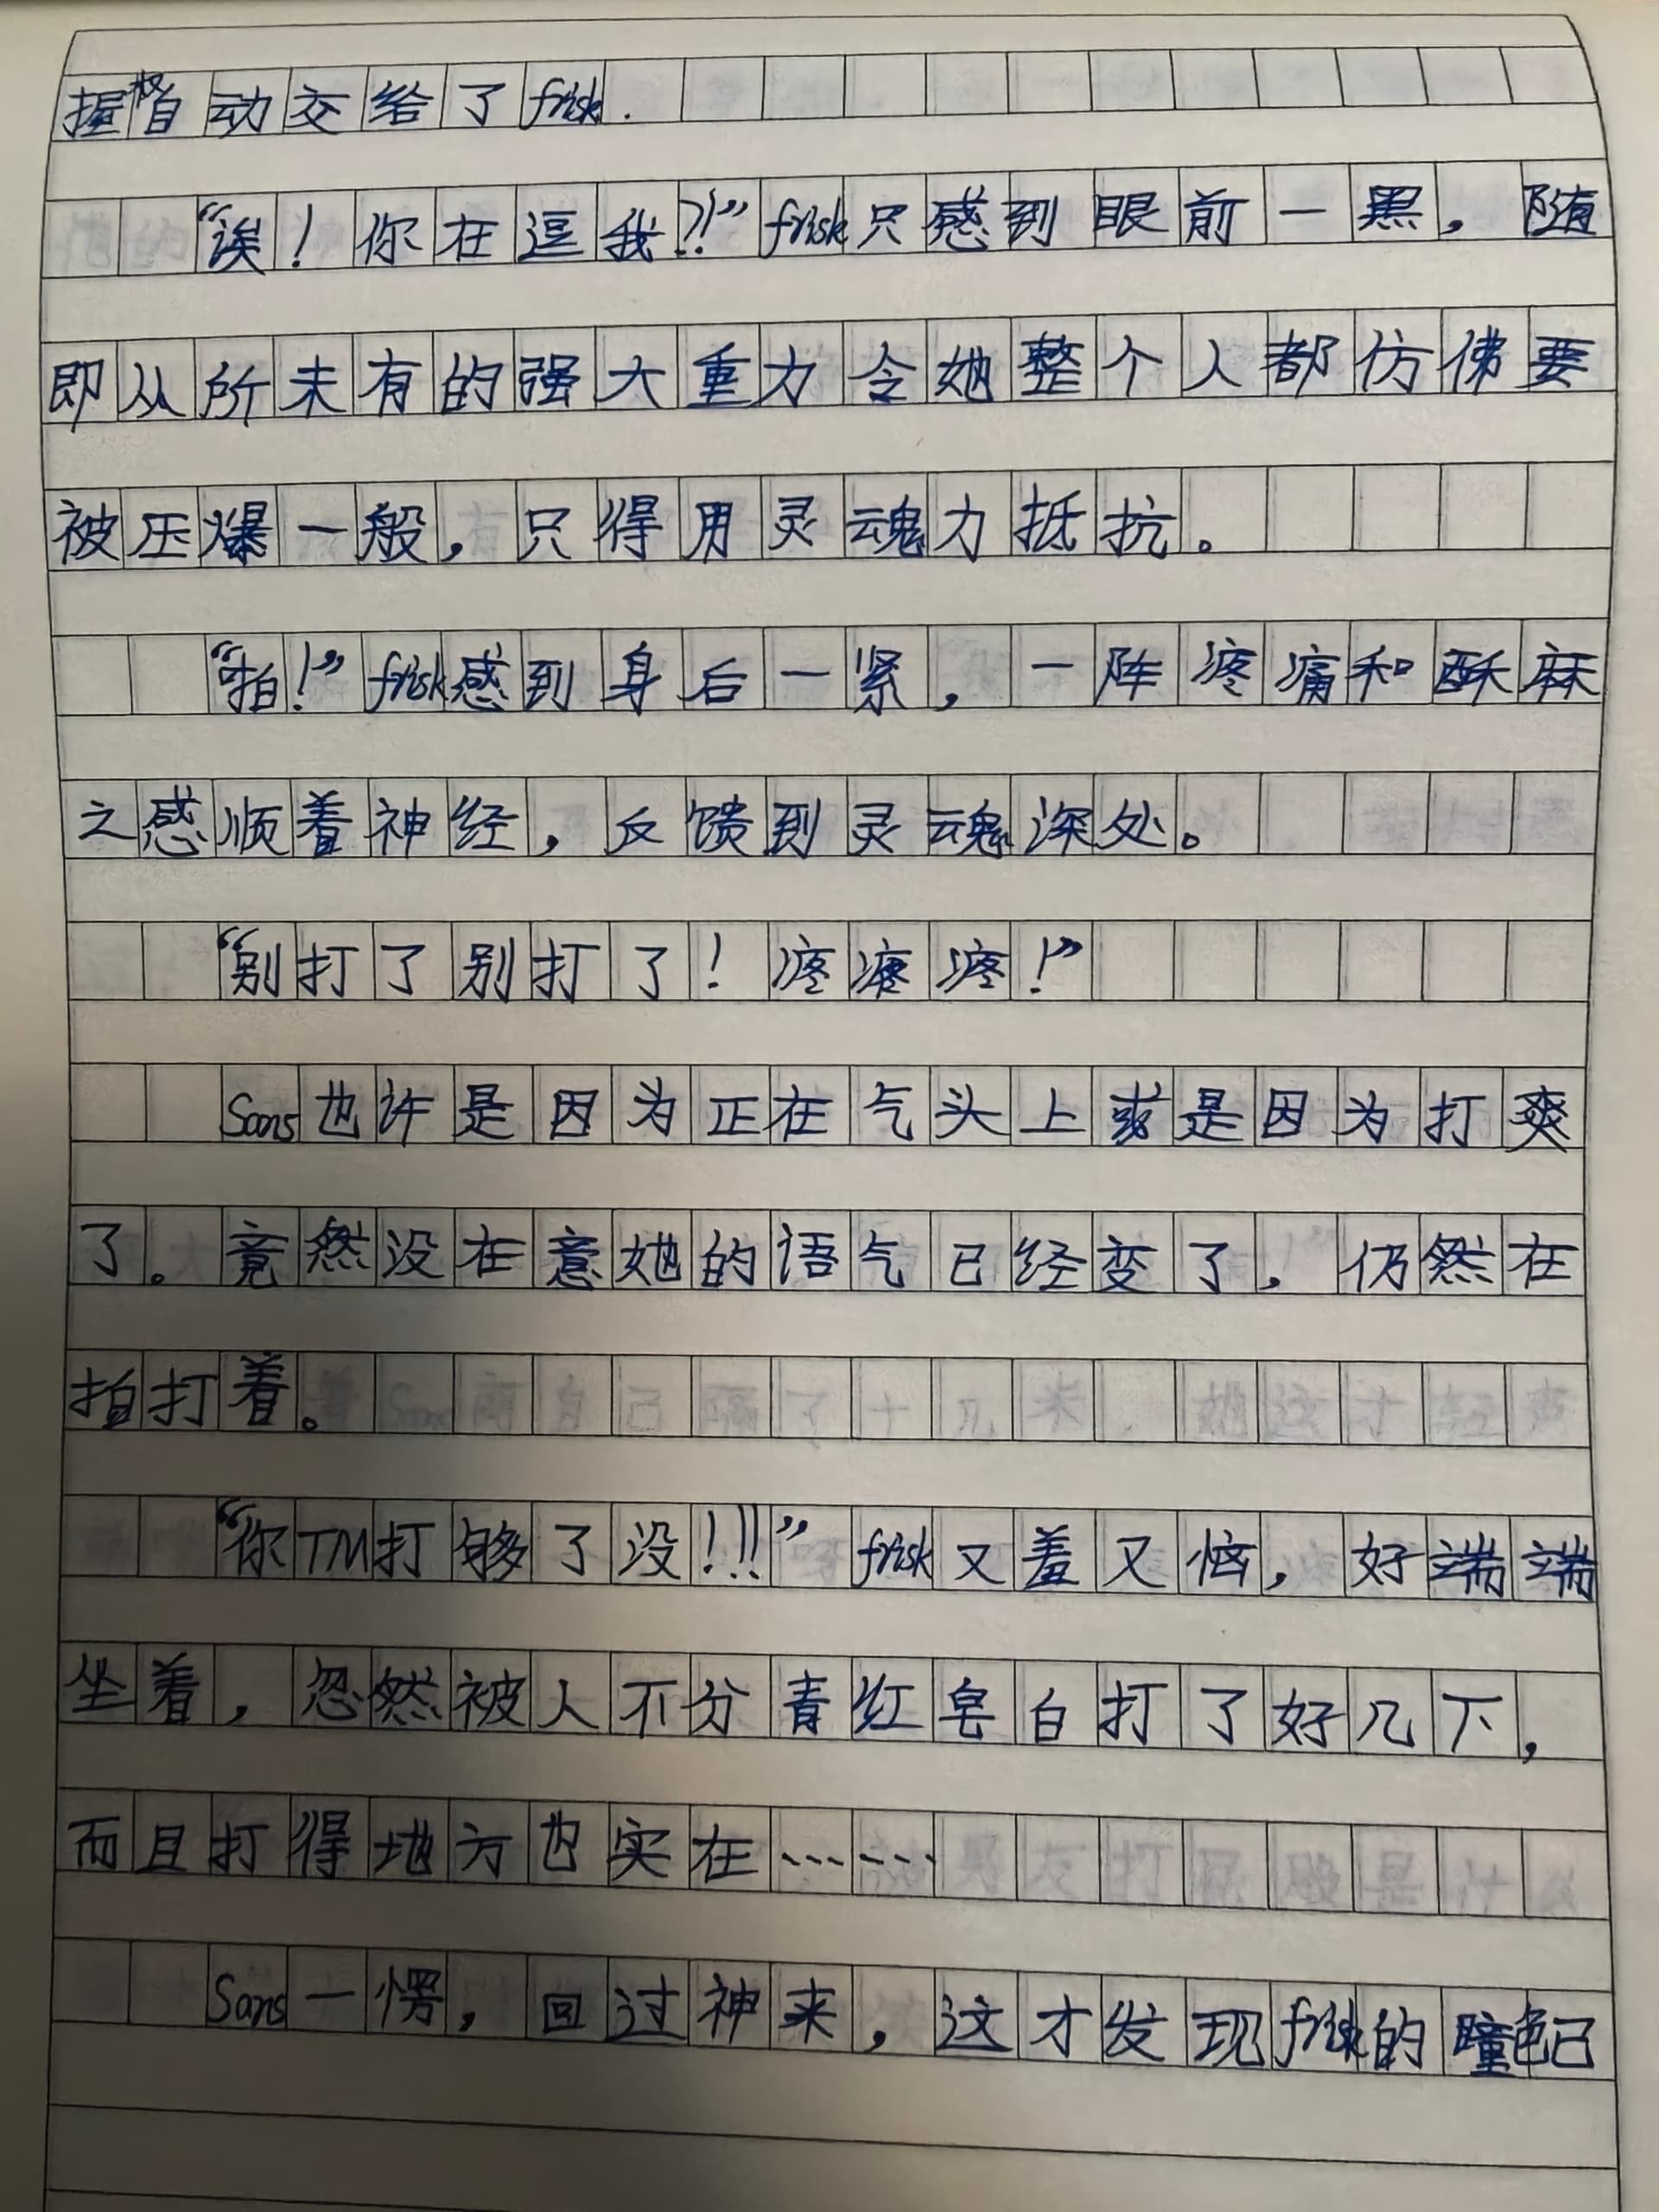 握权自动交给了frisk.
“诶！你在逗我?!”frisk只感到眼前一黑，随
即从所未有的强大重力令她整个人都仿佛要
被压爆一般，只得用灵魂力抵抗。
“啪！”frisk感到身后一紧，一阵疼痛和酥麻
之感顺着神经，反馈到灵魂深处。
“别打了别打了！疼疼疼！”
Sans也许是因为正在气头上或是因为打爽
了。竟然没在意她的语气已经变了，仍然在
拍打着。
“你TM打够了没！!!”frisk又羞又恼，好端端
坐着，忽然被人不分青红皂白打了好几下，
而且打得地方也实在……
Sans一愣，回过神来，这才发现frisk的瞳色已